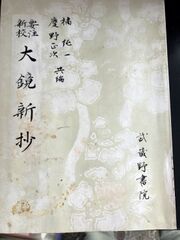 橘 純一
慶野正次 共編
要注
新校
大鏡新抄
武蔵野書院